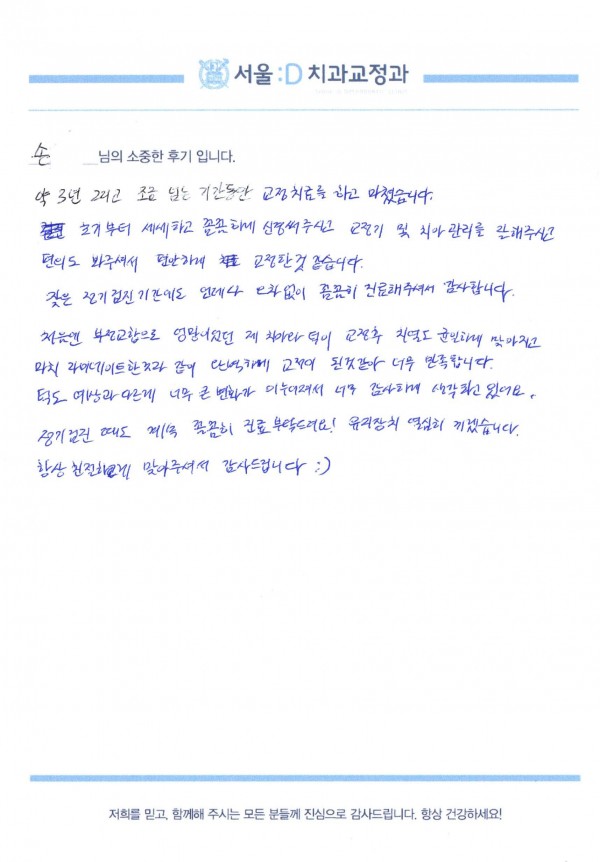 서울:D 치과교정과
손 님의 소중한 후기 입니다.
약 3년 그리고 조금 넘는 기간동안 교정치료를 하고 마쳤습니다.
초기부터 세세하고 꼼꼼하게 신경써주시고 교정기 및 치아관리를 잘해주시고
편의도 봐주셔서 편안하게 교정한것 같습니다.
잦은 정기검진기간에도 언제나 변화없이 꼼꼼히 진료해주셔서 감사합니다.
처음엔 부정교합으로 엉망이였던 제 치아와 턱이 교정후 치열도 균일하게 맞아지고
마치 라미네이트한것과 같이 완벽하게 교정이 된것같아 너무 만족합니다.
턱도 예상과 다르게 너무 큰 변화가 이루어져서 너무 감사하게 생각하고 있어요.
정기검진 때도 계속 꼼꼼히 진료 부탁드려요! 유지장치 열심히 끼겠습니다.
항상 친절하게 맞아주셔서 감사드립니다 :)
저희를 믿고, 함께해 주시는 모든 분들께 진심으로 감사드립니다. 항상 건강하세요!